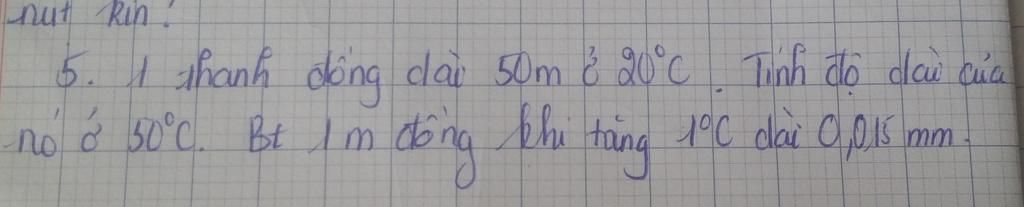 nút kín.
5. 1 thanh đồng dài 50m ở 20°C. Tính độ dài của
nó ở 50°C. Bt 1m đồng khi tăng 1°C dài 0,015 mm.